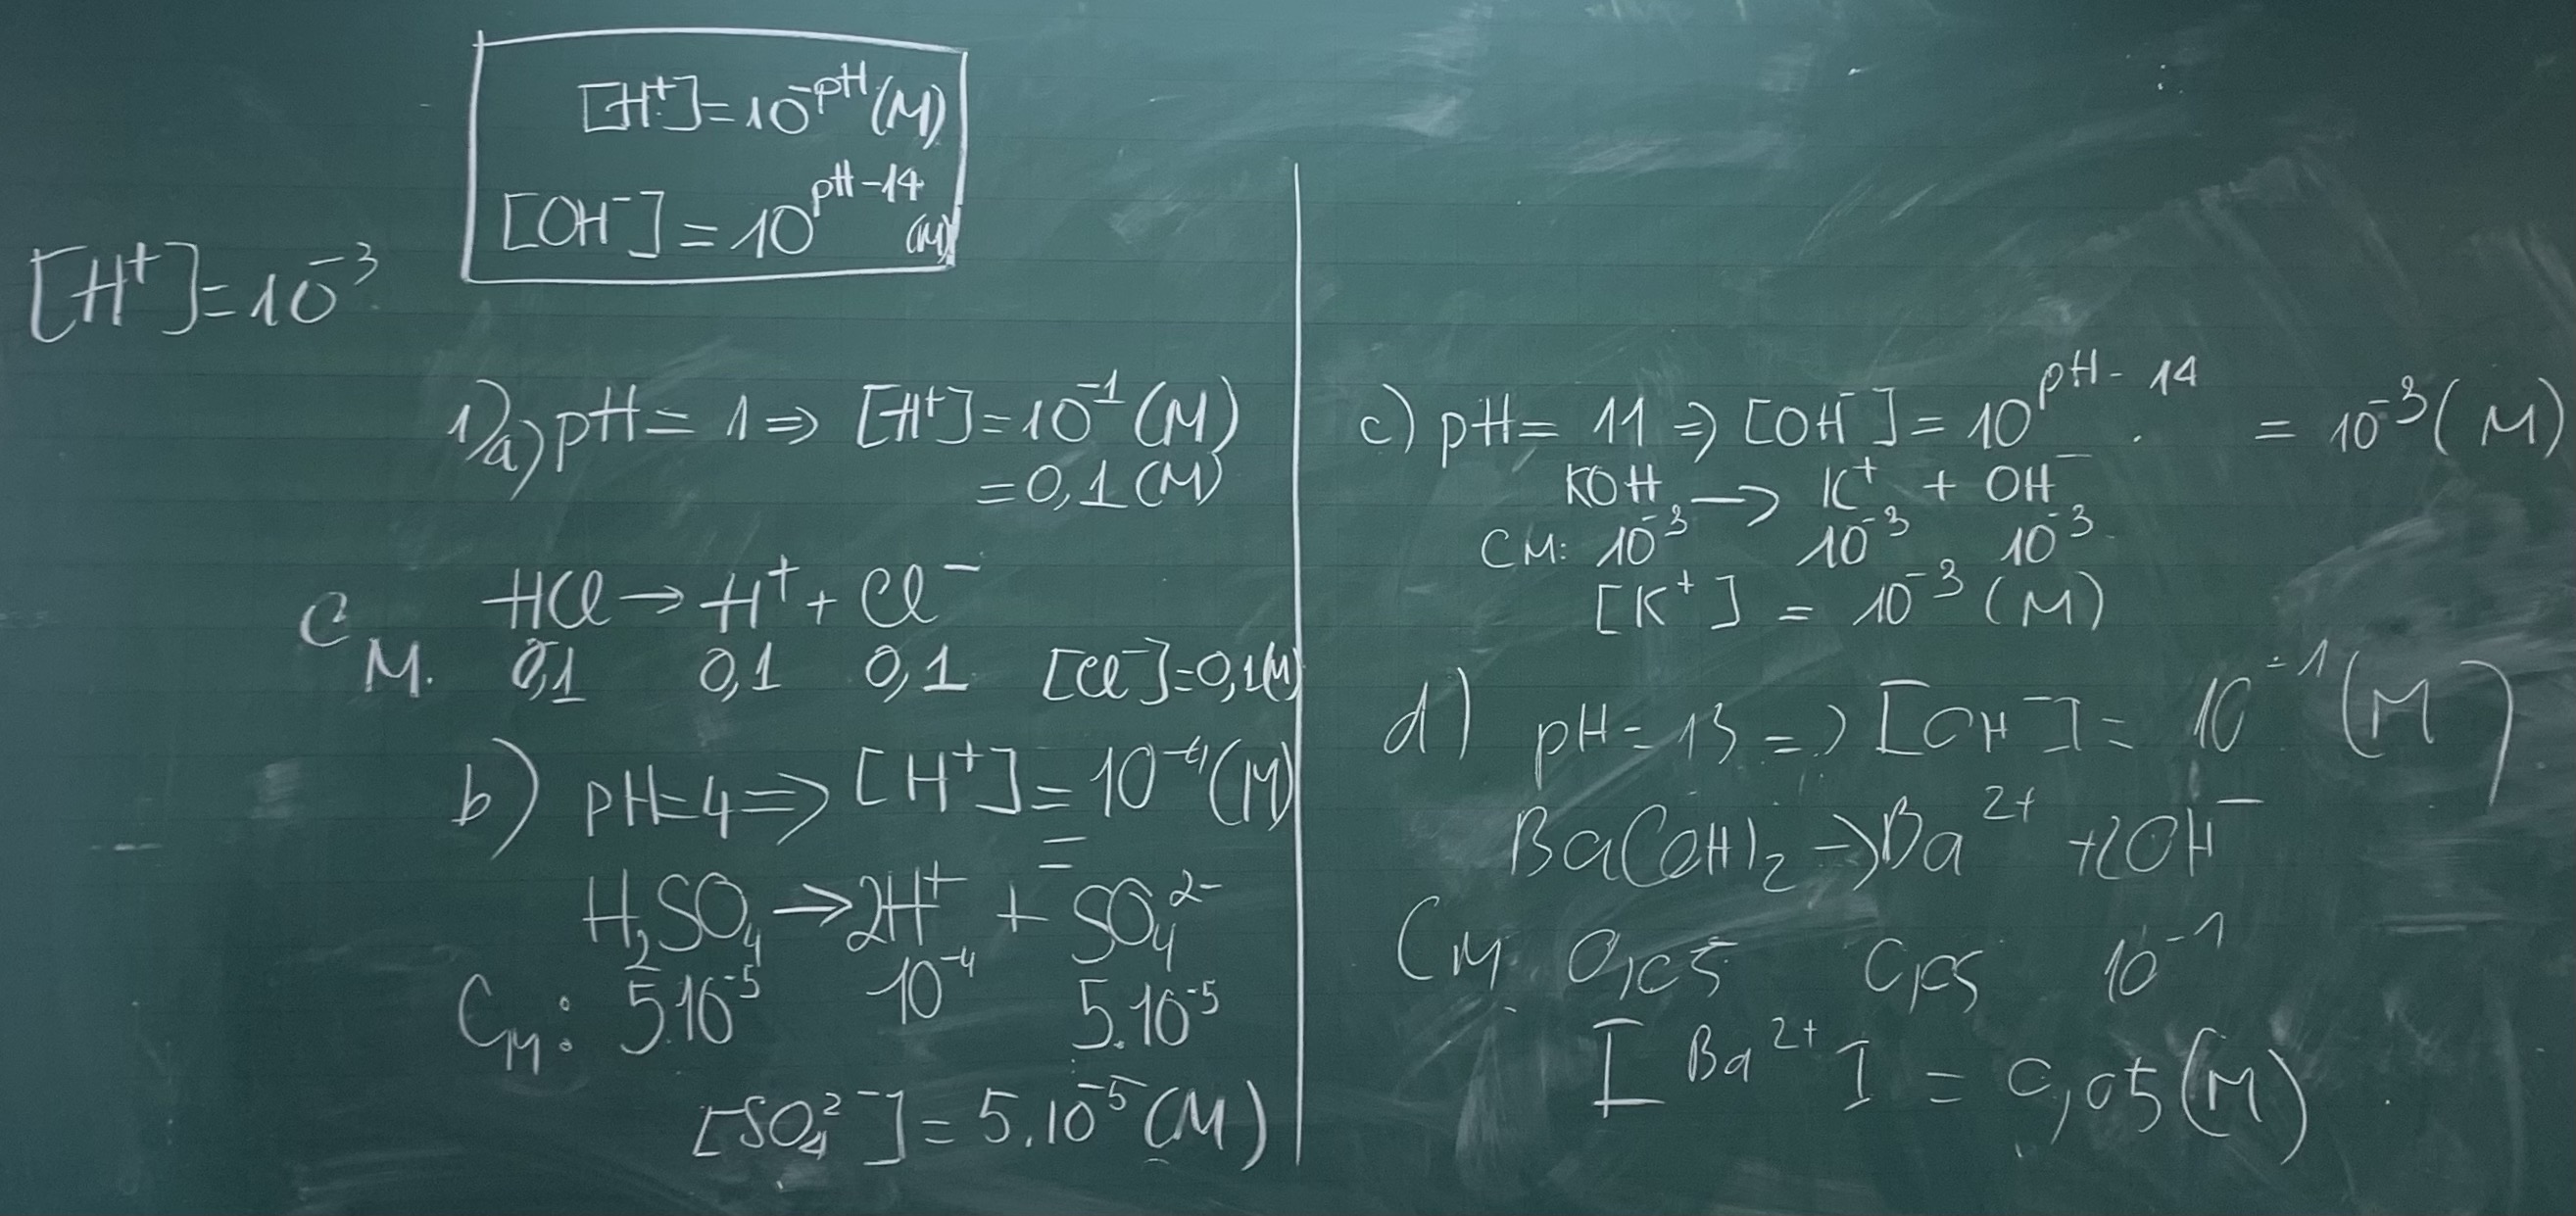 [H⁺]=10⁻ᵖᴴ(M)
[OH⁻]=10ᵖᴴ⁻¹⁴ (M)
[H⁺]=10⁻³
1) a) pH= 1 ⇒ [H⁺]=10⁻¹(M)
=0,1(M)
HCl → H⁺ + Cl⁻
C M. 0,1 0,1 0,1 [Cl⁻]=0,1(M)
b) pH=4 ⇒ [H⁺]=10⁻⁴(M)
=
H₂SO₄ → 2H⁺ + SO₄²⁻
C_M: 5.10⁻⁵ 10⁻⁴ 5.10⁻⁵
[SO₄²⁻] = 5.10⁻⁵(M)
c) pH= 11 ⇒ [OH⁻]= 10ᵖᴴ⁻¹⁴ = 10⁻³(M)
KOH → K⁺ + OH⁻
CM: 10⁻³ 10⁻³ 10⁻³
[K⁺] = 10⁻³(M)
d) pH=13 => [OH⁻]= 10⁻¹(M)
Ba(OH)₂ → Ba²⁺ + 2OH⁻
C_M 0,05 0,05 10⁻¹
[Ba²⁺] = 0,05(M)